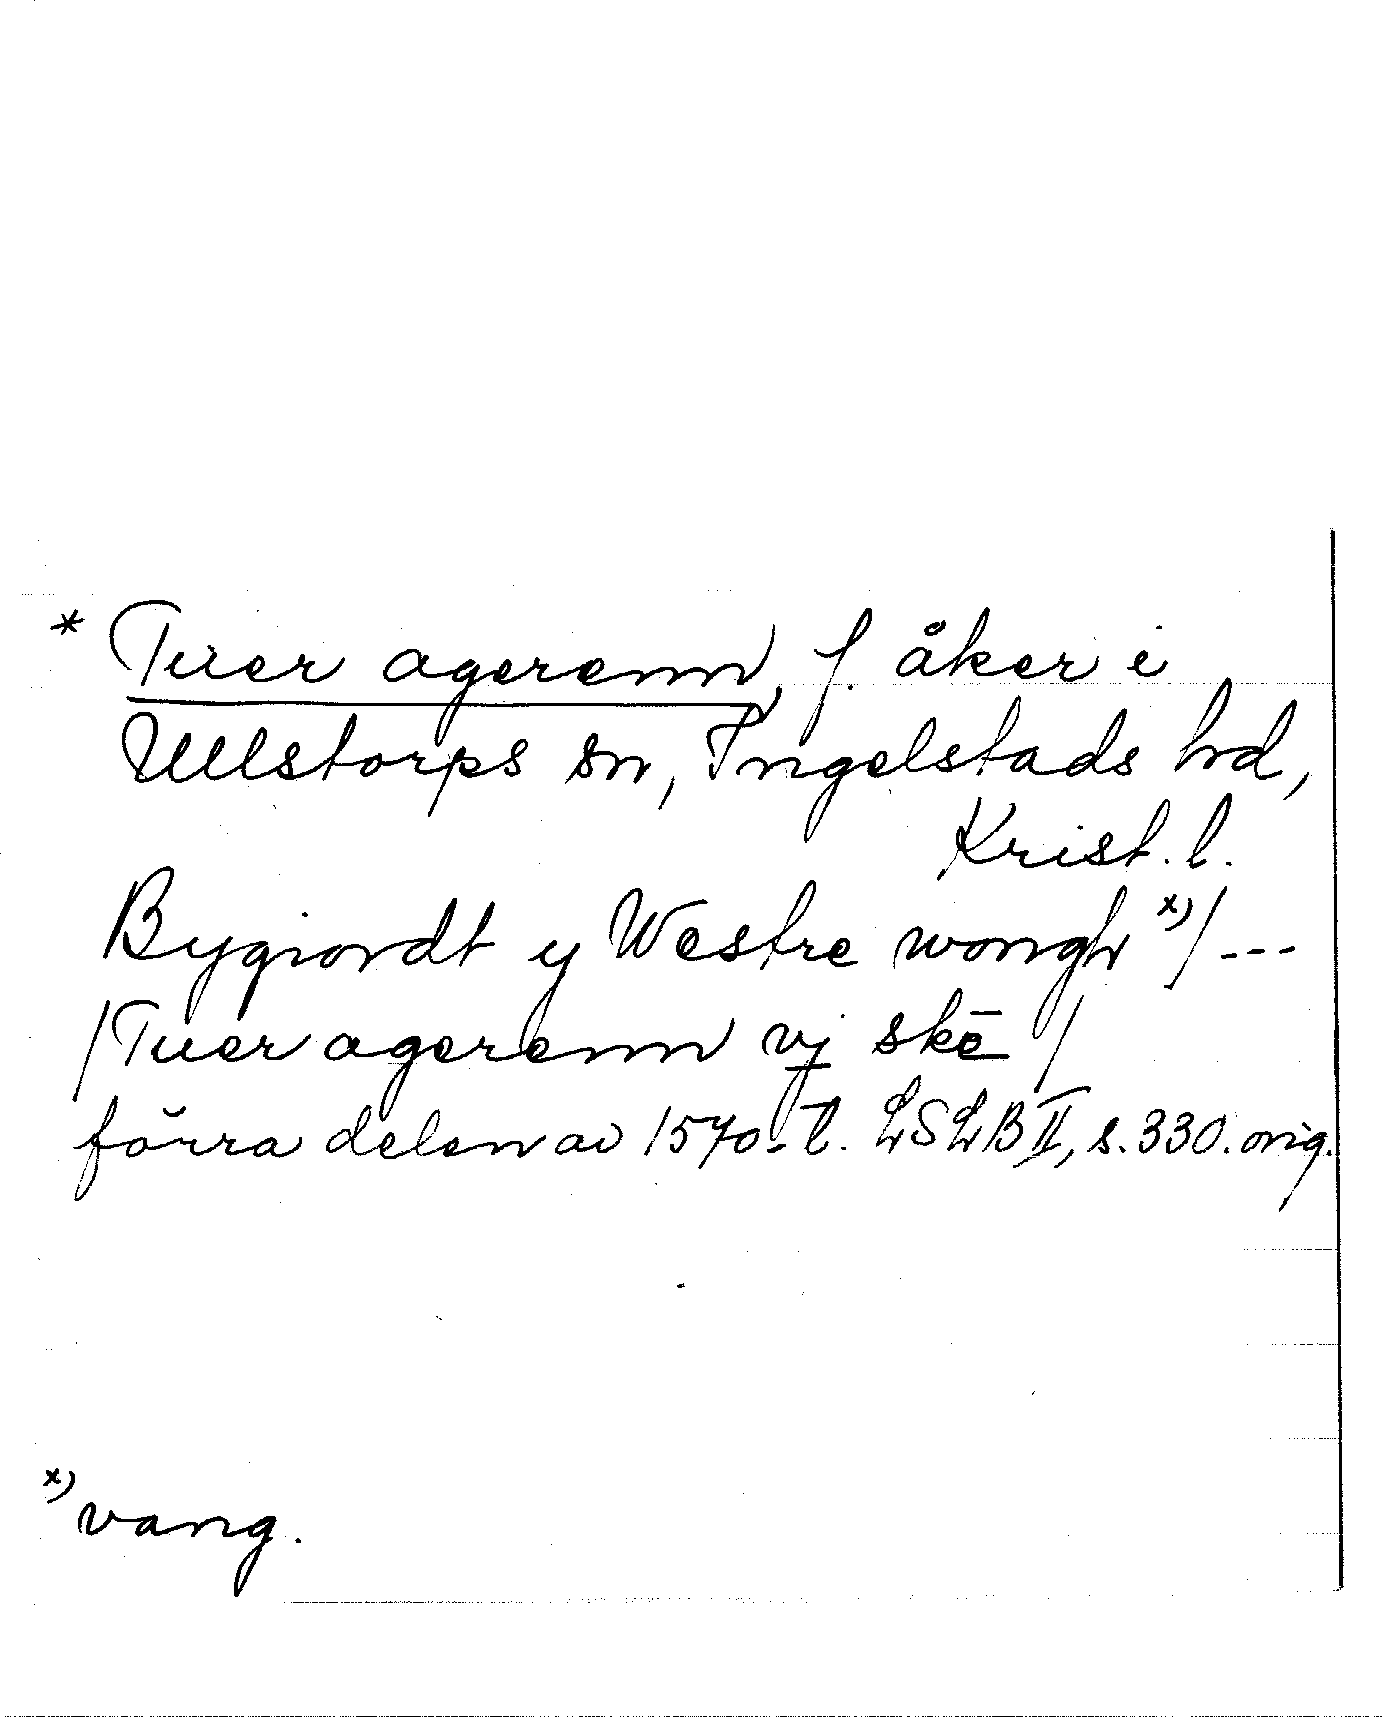 * Tuer agerenn, f. åker i
Ullstorps sn, Ingelstads hd,
Krist. l.
Bygiordt y Westre wongh x) / ---
/ Tuer agerenn vj skē /
förra delen av 1570-t. LSLB II, s. 330. orig.
x) vang.